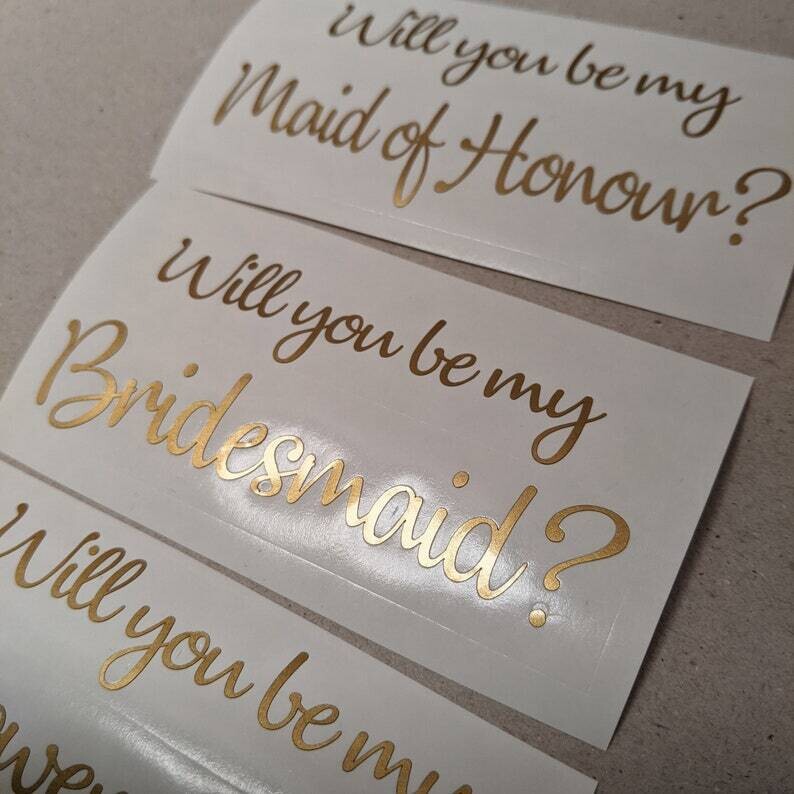 Will you be my
Maid of Honour?
Will you be my
Bridesmaid?
Will you be my